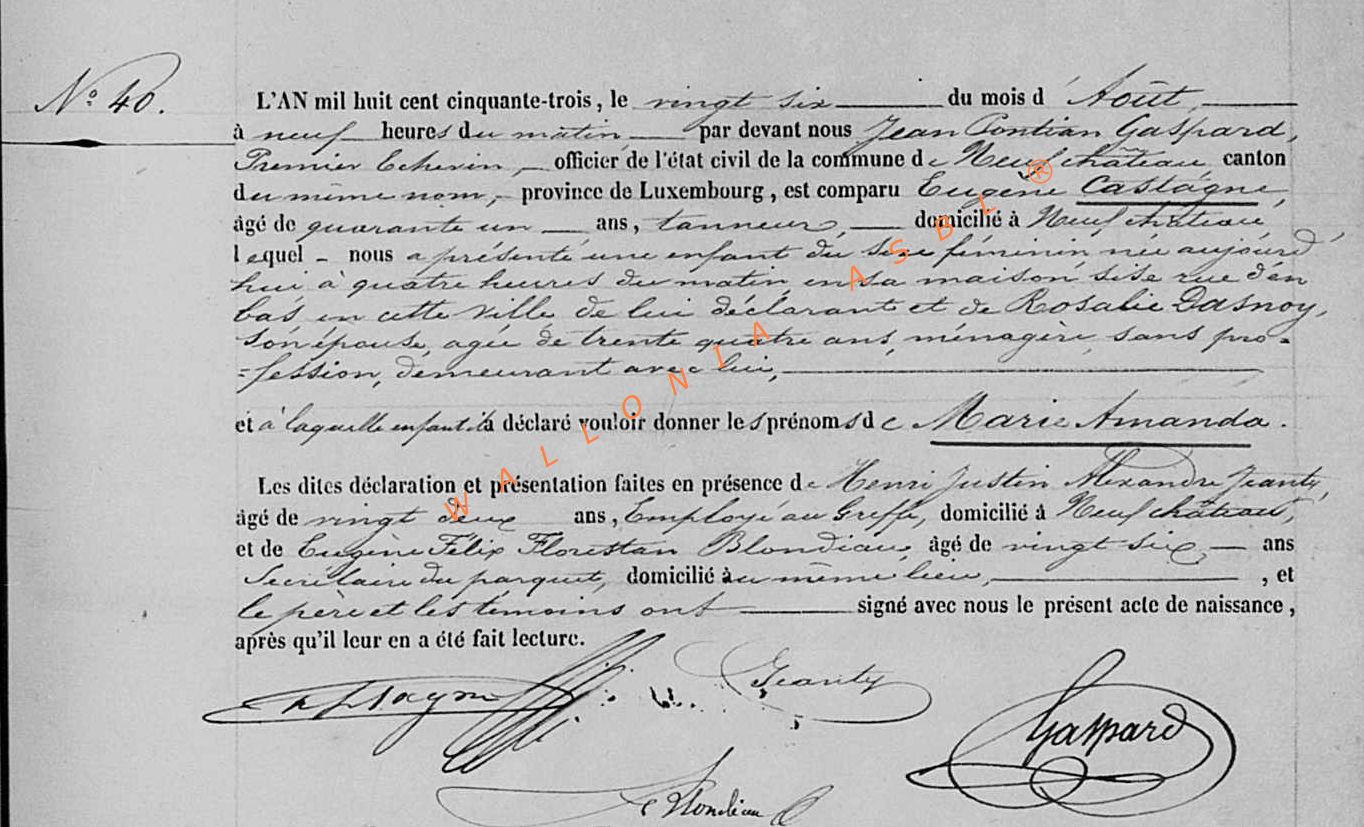 N° 40.
L'AN mil huit cent cinquante-trois, le vingt six du mois d'Août,
à neuf heures du matin par devant nous Jean Pontian Gaspard,
Premier Echevin, officier de l'état civil de la commune de Neufchâteau canton
du même nom, province de Luxembourg, est comparu Eugène Castagne,
âgé de quarante un ans, tanneur, domicilié à Neufchâteau,
lequel nous a présenté une enfant du sexe féminin née aujourd'
hui à quatre heures du matin, en sa maison sise rue d'en
bas en cette ville de lui déclarant et de Rosalie Dasnoy,
son épouse, agée de trente quatre ans, ménagère, sans pro=
=fession, demeurant avec lui,
et à laquelle enfant il a déclaré vouloir donner les prénoms de Marie Amanda.
Les dites déclaration et présentation faites en présence de Henri Justin Alexandre Jeanty,
âgé de vingt deux ans, Employé au Greffe, domicilié à Neufchâteau,
et de Eugène Félix Florestan Blondiau, âgé de vingt six, ans
Secrétaire du parquet, domicilié au même lieu, , et
le père et les témoins ont signé avec nous le présent acte de naissance,
après qu'il leur en a été fait lecture.
Castagne
Jeanty
Gaspard
Blondiau
WALLONIA ASBL ®